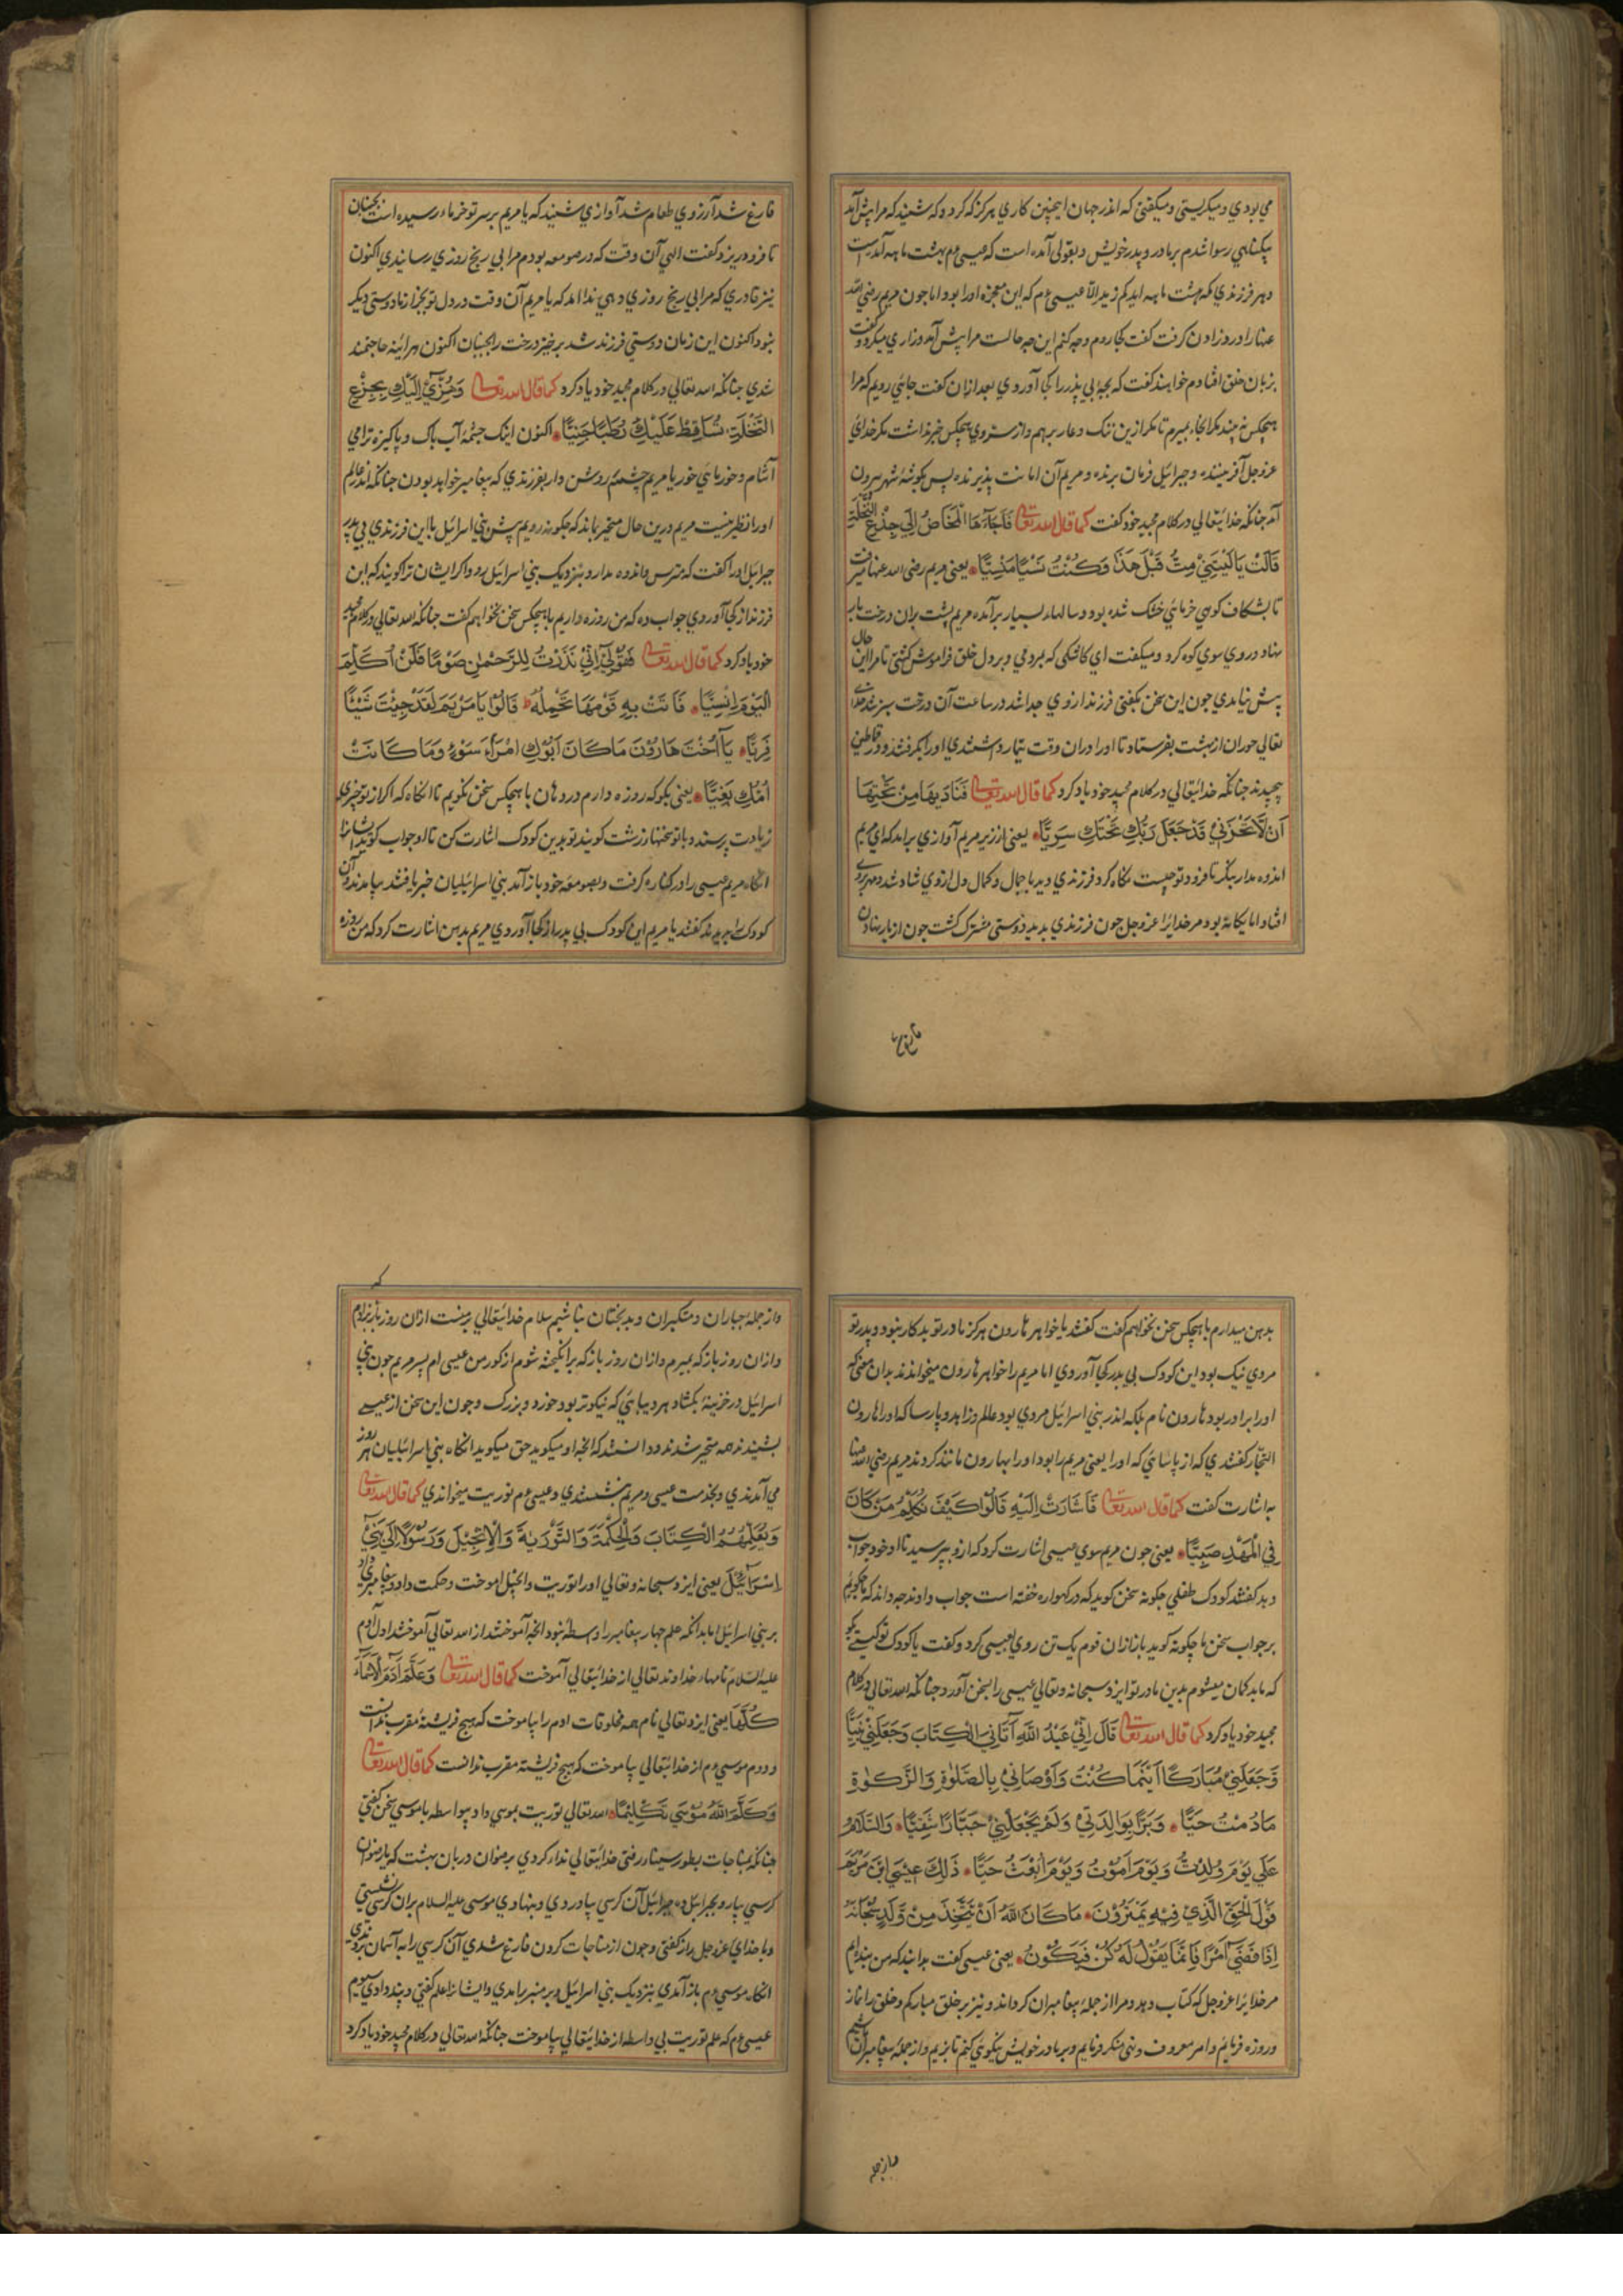 مي بودي و ميكريستي و ميكفتي كه اندر جهان اينچنين كاري هركز كه كرد و كه شنيد كه مرا پيش آمد
بيكناهي رسوا شدم بر مادر و پدر خويش و بقولي آمده است كه عيسي ع م بهشت ماهه آمده است
و هر فرزندي كه بهشت ماهه ايد كم زيد الا عيسي ع م كه اين معجزه او را بود اما چون مريم رضي الله
عنها را درد زادن كرفت كفت كجا روم و چه كنم اين چه حالست مرا پيش آمد و زاري ميكرد و كفت
بزبان خلق افتادم خواهند كفت كه بچهٔ بي پدر را كجا آوردي بعد ازان كفت جائي رويم كه مرا
هيچكس نه بيند مكر انجا بميرم تا مكر ازين ننك و عار برهم و از سر وي هيچكس خبر نداشت مكر خداي
عزوجل آفريننده و جبرائيل فرمان برنده و مريم آن امانت پذيرنده پس بكوشهٔ شهر بيرون
آمد چنانكه خدايتعالي در كلام مجيد خود كفت كما قال الله تعالى فَأَجَاءَهَا الْمَخَاضُ إِلَى جِذْعِ النَّخْلَةِ
قَالَتْ يَا لَيْتَنِي مِتُّ قَبْلَ هَذَا وَكُنْتُ نَسْيًا مَنْسِيًّا يعني مريم رضي الله عنها ميرفت
تا بشكاف كوهي خرمائي خشك شده بود و سالهاء بسيار برآمده مريم پشت بران درخت باز
نهاد و روي سوي كوه كرد و ميكفت اي كاشكي كه بمردمي و بر دل خلق فراموش كشتي تا مرا اين حال
پيش نيامدي چون اين سخن بكفتي فرزند از وي جدا شد در ساعت آن درخت سبز شد خداي
تعالي حوران از بهشت بفرستاد تا او را دران وقت تيمار داشتندي او را بكرفتند و در قماطين
پيچيدند چنانكه خدايتعالي در كلام مجيد خود ياد كرد كما قال الله تعالى فَنَادَيهَا مِنْ تَحْتِهَا
أَنْ لَا تَحْزَنِي قَدْ جَعَلَ رَبُّكِ تَحْتَكِ سَرِيًّا يعني از زير مريم آوازي برامد كه اي مريم
اندوه مدار بنكر تا فرود تو چيست نكاه كرد فرزندي ديد با جمال و كمال دل از وي شاد شد و مهر بروي
افتاد اما يكانه بود مر خدايرا عزوجل چون فرزندي بديد دوستي مشترك كشت چون از بار نهادن
فارغ
فارغ شد آرزوي طعام شد آوازي شنيد كه يا مريم بر سر تو خرماء رسيده است بجنبان
تا فرود ريزد كفت الهي آن وقت كه در صومعه بودم مرا بي رنج روزي رسانيدي اكنون
نيز قادري كه مرا بي رنج روزي دهي ندا امد كه يا مريم آن وقت در دل تو بجز از ما دوستي ديكر
نبود اكنون اين زمان دوستي فرزند شد برخيز درخت را بجنبان اكنون هرائينه حاجتمند
شدي چنانكه الله تعالي در كلام مجيد خود ياد كرد كما قال الله تعالى وَهُزِّي إِلَيْكِ بِجِذْعِ
النَّخْلَةِ تُسَاقِطْ عَلَيْكِ رُطَبًا جَنِيًّا اكنون اينك چشمهٔ آب پاك و پاكيزه ترا مي
آشام و خرمائي خور يا مريم چشمت روشن دار بفرزندي كه پيغامبر خواهد بودن چنانكه اندر عالم
او را نظير نيست مريم درين حال متحير بماند كه چكونه رويم پيش بني اسرائيل با اين فرزندي بي پدر
جبرايل او را كفت كه مترس و اندوه مدار و بنزديك بني اسرائيل رو و اكر ايشان ترا كويند كه اين
فرزند از كجا آوردي جواب ده كه من روزه داريم با هيچكس سخن نخواهم كفت چنانكه الله تعالي در كلام مجيد
خود ياد كرد كما قال الله تعالى فَقُولِي إِنِّي نَذَرْتُ لِلرَّحْمٰنِ صَوْمًا فَلَنْ أُكَلِّمَ
الْيَوْمَ إِنْسِيًّا فَأَتَتْ بِهِ قَوْمَهَا تَحْمِلُهُ قَالُوا يَا مَرْيَمُ لَقَدْ جِئْتِ شَيْئًا
فَرِيًّا يَا أُخْتَ هَارُونَ مَا كَانَ أَبُوكِ امْرَأَ سَوْءٍ وَمَا كَانَتْ
أُمُّكِ بَغِيًّا يعني بكو كه روزه دارم در دهان با هيچكس سخن نكويم تا انكاه كه اكر از تو چيزي
زيادت پرسند و با تو سخنهاء زشت كويند تو بدين كودك اشارت كن تا او جواب كويد ايشانرا
انكاه مريم عيسي را در كناره كرفت و بصومعهٔ خود باز آمد بني اسرائيليان خبر يافتند بيامدند و آن
كودك را بديدند كفتند يا مريم اين كودك بي پدر از كجا آوردي مريم بدهن اشارت كرد كه من روزه
بدهن ميدارم با هيچكس سخن نخواهم كفت كفتند يا خواهر هارون هركز مادر تو بدكار نبود و پدر تو
مردي نيك بود اين كودك بي پدر كجا آوردي اما مريم را خواهر هارون ميخواندند بدان معني كه
او را برادر بود هارون نام بلكه اندر بني اسرائيل مردي بود عالم و زاهد و پارسا كه او را هارون
النجار كفتندي كه از پارسائي كه او را يعني مريم را بود او را بهارون مانند كردند مريم رضي الله عنها
به اشارت كفت كما قال الله تعالى فَأَشَارَتْ إِلَيْهِ قَالُوا كَيْفَ نُكَلِّمُ مَنْ كَانَ
فِي الْمَهْدِ صَبِيًّا يعني چون مريم سوي عيسي اشارت كرد كه ازو بپرسيد تا او خود جواب
دهد كفتند كودك طفلي چكونه سخن كويد كه در كهواره خفته است جواب داوند چه داند كه ما چكوئيم
بر جواب سخن ما چكونه كويد باز ازان قوم يك تن روي بعيسي كرد و كفت يا كودك تو كيستي بكو
كه ما بد كمان ميشوم بدين مادر تو ايزد سبحانه و تعالي عيسي را بسخن آورد چنانكه الله تعالي در كلام
مجيد خود ياد كرد كما قال الله تعالى قَالَ إِنِّي عَبْدُ اللَّهِ آتَانِيَ الْكِتَابَ وَجَعَلَنِي نَبِيًّا
وَجَعَلَنِي مُبَارَكًا أَيْنَمَا كُنْتُ وَأَوْصَانِي بِالصَّلٰوةِ وَالزَّكٰوةِ
مَا دُمْتُ حَيًّا وَبَرًّا بِوَالِدَتِي وَلَمْ يَجْعَلْنِي جَبَّارًا شَقِيًّا وَالسَّلَامُ
عَلَيَّ يَوْمَ وُلِدْتُ وَيَوْمَ أَمُوتُ وَيَوْمَ أُبْعَثُ حَيًّا ذَلِكَ عِيسَى ابْنُ مَرْيَمَ
قَوْلَ الْحَقِّ الَّذِي فِيهِ يَمْتَرُونَ مَا كَانَ لِلَّهِ أَنْ يَتَّخِذَ مِنْ وَلَدٍ سُبْحَانَهُ
إِذَا قَضَى أَمْرًا فَإِنَّمَا يَقُولُ لَهُ كُنْ فَيَكُونُ يعني عيسي كفت بدانيد كه من بنده ام
مر خدايرا عزوجل كه كتاب دهد و مرا از جملهٔ پيغامبران كرداند و نيز بر خلق مباركم و خلق را نماز
و روزه فرمايم و امر معروف و نهي منكر فرمايم و بر مادر خويش نيكوئي كنم تا بزيم و از جملهٔ پيغامبران باشم
و از جمله
و از جملهٔ جباران و متكبران و بدبختان نباشم سلام خدايتعالي بر منست ازان روز باز كه بزادم
و ازان روز باز كه بميرم و ازان روز باز كه برانكيخته شوم از كور من عيسي ام پسر مريم چون بني
اسرائيل در خزينه بكشاد هر ديبائي كه نيكوتر بود خورد و بزرك و چون اين سخن از عيسي
بشنيدند همه متحير شدند و دانستند كه انچه او ميكويد حق ميكويد انكاه بني اسرائيليان هر روز
مي آمدندي و بخدمت عيسي و مريم بنشستندي و عيسي ع م توريت ميخواندي كما قال الله تعالى
وَيُعَلِّمُهُمُ الْكِتَابَ وَالْحِكْمَةَ وَالتَّوْرَيةَ وَالْإِنْجِيلَ وَرَسُولًا إِلَى بَنِي
إِسْرَائِيلَ يعني ايزد سبحانه و تعالي او را توريت و انجيل اموخت و حكمت داد و پيغامبري داد
بر بني اسرائيل اما بدانكه علم چهار پيغامبر را واسطه نبود انچه آموختند از الله تعالي آموختند اول آدم
عليه السلام نامهاء خداوند تعالي از خدايتعالي آموخت كما قال الله تعالى وَعَلَّمَ آدَمَ الْأَسْمَاءَ
كُلَّهَا يعني ايزد تعالي نام همه مخلوقات ادم را بياموخت كه هيچ فريشتهٔ مقرب ندانست
و دوم موسي ع م از خدايتعالي بياموخت كه هيچ فريشتهٔ مقرب ندانست كما قال الله تعالى
وَكَلَّمَ اللَّهُ مُوسَى تَكْلِيمًا الله تعالي توريت بموسي داد بيواسطه با موسي سخن كفتي
چنانكه بمناجات بطور سيناء رفتي خدايتعالي نداء كردي برضوان دربان بهشت كه يا رضوان
كرسي بيار و بجبرائيل ده جبرائيل آن كرسي بياوردي و بنهادي موسي عليه السلام بران كرسي نشستي
و با خداي عزوجل راز كفتي و چون از مناجات كردن فارغ شدي آن كرسي را به آسمان بردندي
انكاه موسي ع م باز آمدي بنزديك بني اسرائيل و بر منبر برامدي و ايشانرا علم كفتي و پند دادي سيوم
عيسي ع م كه علم توريت بي واسطه از خدايتعالي بياموخت چنانكه الله تعالي در كلام مجيد خود ياد كرد